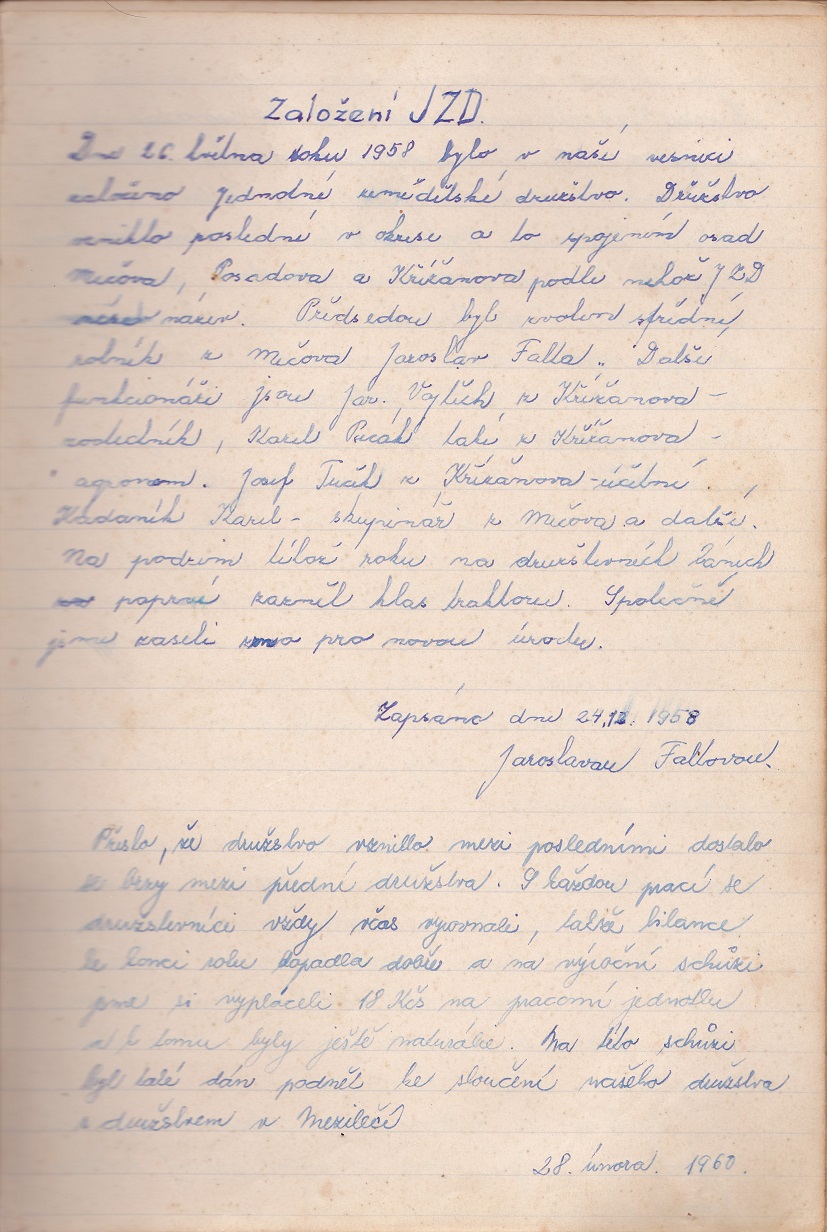 Založení JZD.
Dne 26. května roku 1958 bylo v naší vesnici
založeno Jednotné zemědělské družstvo. Družstvo
vzniklo poslední v okrese a to spojením osad
Mečova, Posadova a Křížanova podle nehož JZD
název. Předsedou byl zvolen střední
rolník z Mečova Jaroslav Falta. Další
funkcionáři jsou Jar. Vojtěch z Křížanova -
zootechnik, Karel také z Křížanova -
agronom. Josef z Křížanova - účetní.
Kadaník Karel - skupinář z Mečova a další.
Na podzim téhož roku na družstevních lánech
poprvé zazněl hlas traktoru. Společně
jsme zaseli zrno pro novou úrodu.
Zapsáno dne 24.12. 1958
Jaroslavou Faltovou.
Přesto, že družstvo vzniklo mezi posledními dostalo
se brzy mezi přední družstva. S každou prací se
družstevníci vždy včas vyrovnali, takže bilance
ke konci roku dopadla dobře a na výroční schůzi
jsme si vypláceli 18 Kčs na pracovní jednotku
a k tomu byly ještě naturálie. Na této schůzi
byl také dán podnět ke sloučení našeho družstva
s družstvem v Mezilečí
28. února. 1960.